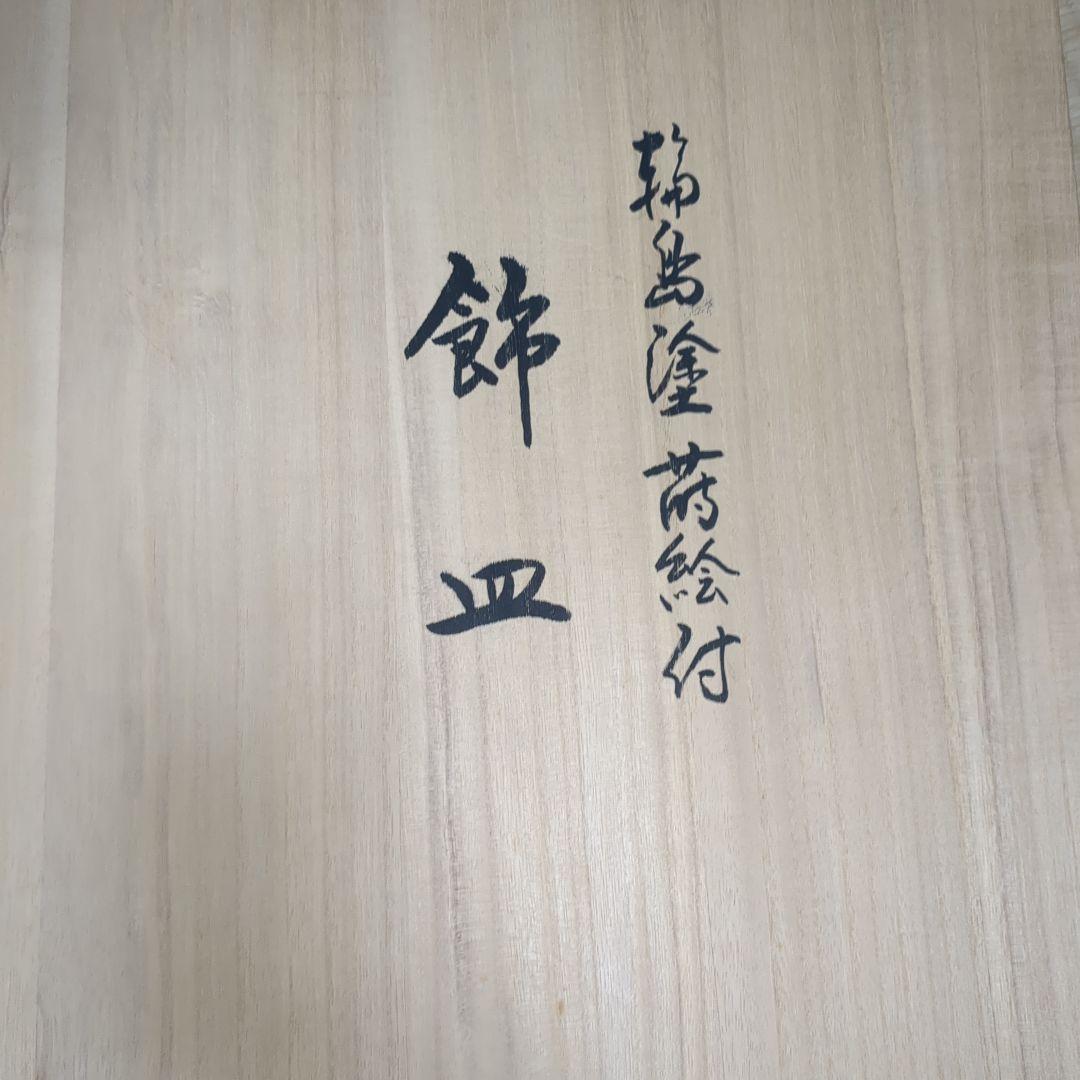 輪島塗蒔絵付
飾皿